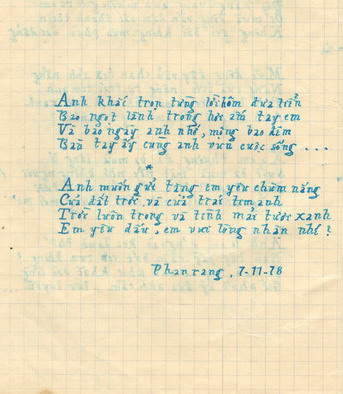 Anh khắc trọn từng lời hôm đưa tiễn
Bao ngọt lành trong hơi ấm tay em
Và bao ngày anh nhớ, mộng bao đêm
Bàn tay ấy cùng anh vun cuộc sống ...
*
Anh muốn gửi tặng em yêu chùm nắng
Của đất trời và của trái tim anh
Trời luôn trong và tình mãi tươi xanh
Em yêu dấu, em vui lòng nhận nhé!
Phan rang, 7-11-78